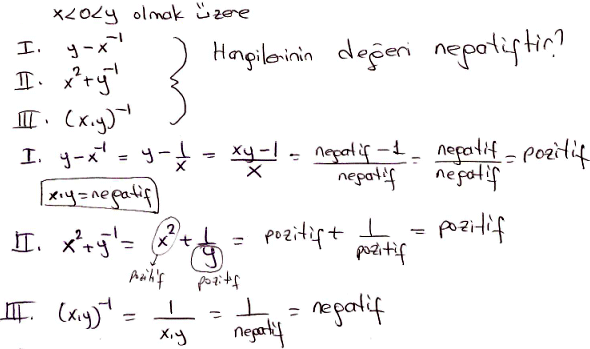 x<0<y olmak üzere
I. y-x⁻¹
II. x²+y⁻¹
III. (x.y)⁻¹
Hangilerinin değeri negatiftir?
I. y-x⁻¹ = y-1/x = xy-1/x = negatif-1/negatif = negatif/negatif = pozitif
x.y=negatif
II. x²+y⁻¹ = x² + 1/y = pozitif + 1/pozitif = pozitif
pozitif pozitif
III. (x.y)⁻¹ = 1/x.y = 1/negatif = negatif